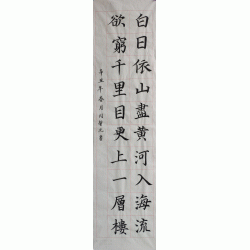 白日依山盡黄河入海流
欲窮千里目更上一層樓
辛丑年春月